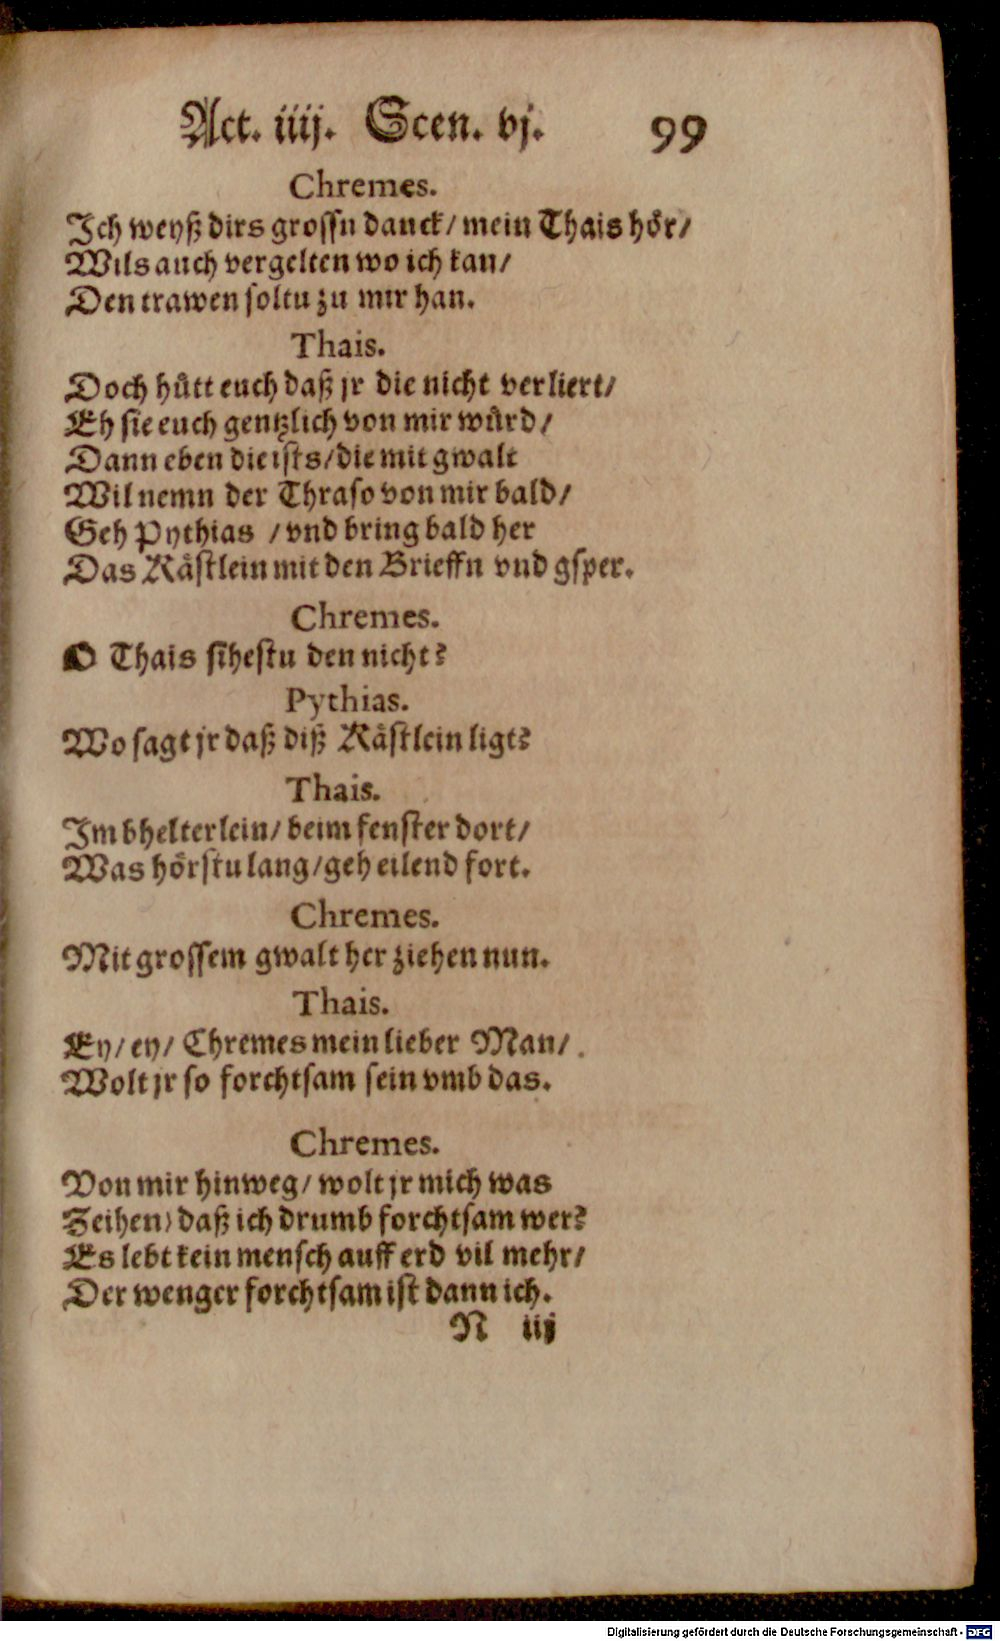 Act. iiij. Scen. vj. 99
Chremes.
Ich weyß dirs grossn danck/ mein Thais hör/
Wils auch vergelten wo ich kan/
Den trawen soltu zu mir han.
Thais.
Doch hütt euch daß jr die nicht verliert/
Eh sie euch gentzlich von mir würd/
Dann eben die ists/ die mit gwalt
Wil nemn der Thraso von mir bald/
Geh Pythias / vnd bring bald her
Das Kästlein mit den Brieffn vnd gsper.
Chremes.
O Thais sihestu den nicht?
Pythias.
Wo sagt jr daß diß Kästlein ligt?
Thais.
Im bhelterlein/ beim fenster dort/
Was hörstu lang/ geh eilend fort.
Chremes.
Mit grossem gwalt her ziehen nun.
Thais.
Ey/ ey/ Chremes mein lieber Man/
Wolt jr so forchtsam sein vmb das.
Chremes.
Von mir hinweg/ wolt jr mich was
Zeihen) daß ich drumb forchtsam wer?
Es lebt kein mensch auff erd vil mehr/
Der wenger forchtsam ist dann ich.
N iij
Digitalisierung gefördert durch die Deutsche Forschungsgemeinschaft - DFG